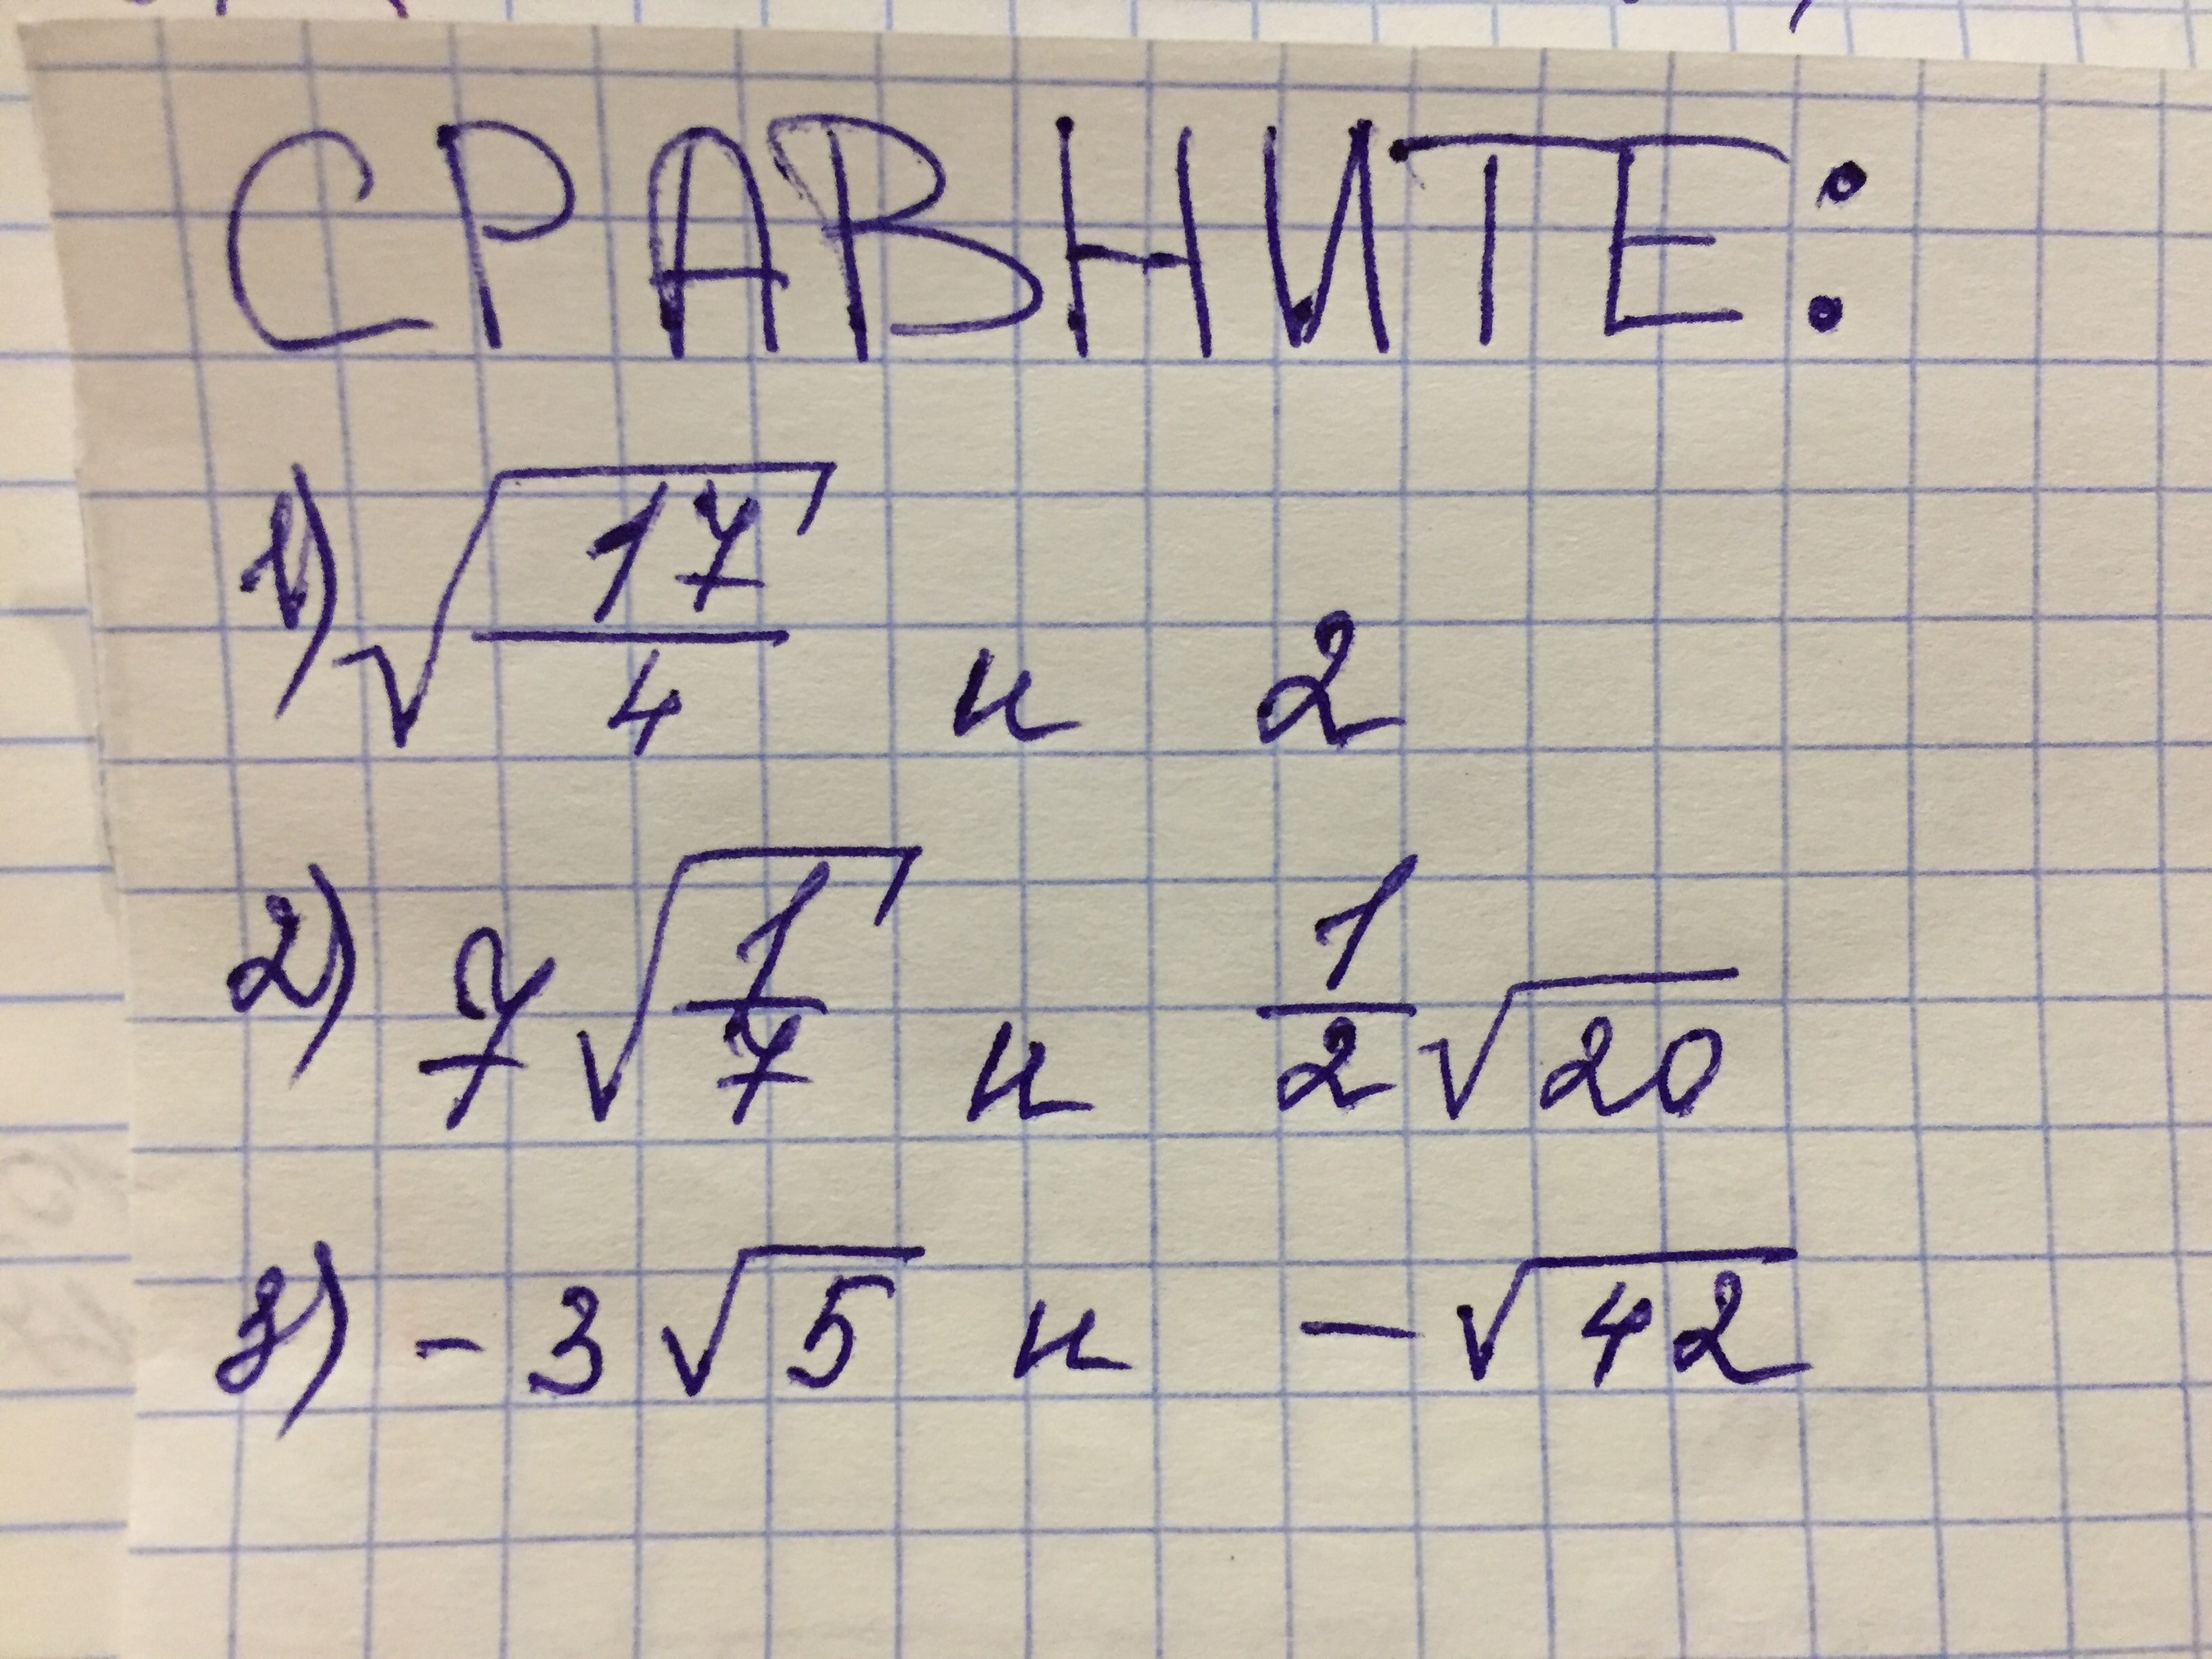 СРАВНИТЕ:
1) √(17/4) и 2
2) 7√(1/7) и 1/2 √20
3) -3√5 и -√42